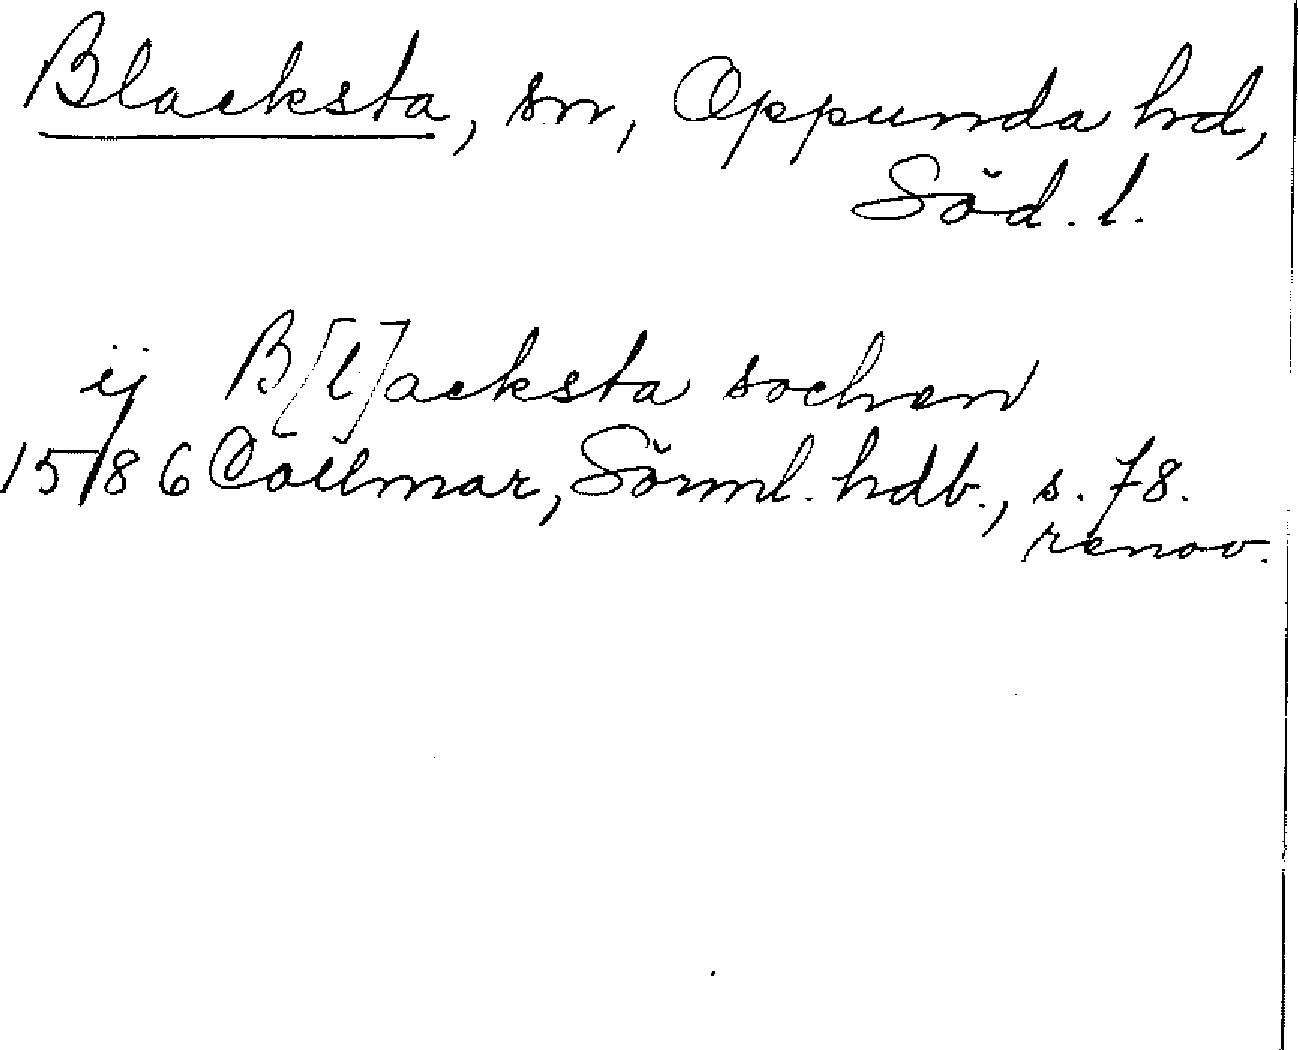 Blacksta, sn, Oppunda hd,
Söd. l.
ij B[l]acksta sochen
1586 Cöllmar, Sörml. hdb., s. 78.
renov.